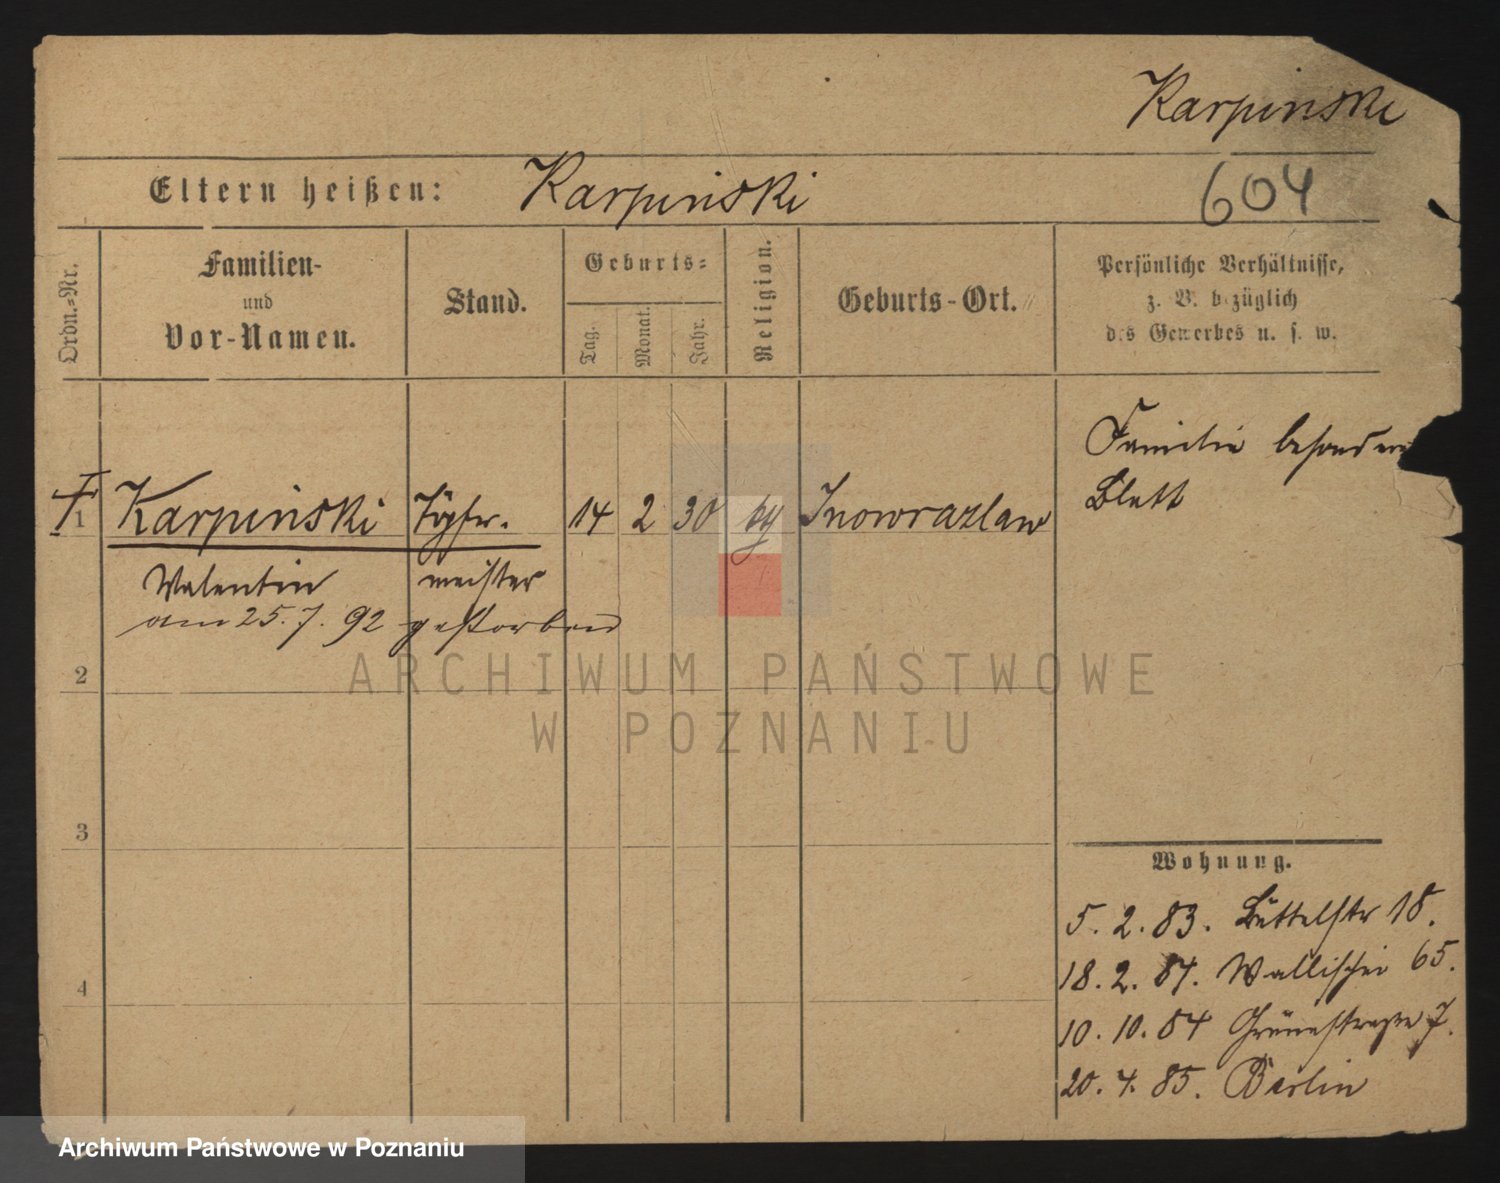 Karpinski
Eltern heißen: Karpinski
604
Ordn.-Nr.
Familien-
und
Vor-Namen.
Stand.
Geburts-
Tag.
Monat.
Jahr.
Religion.
Geburts-Ort.
Persönliche Verhältnisse,
z. B. bezüglich
des Gewerbes u. s. w.
Familie besonderes
Blatt
1 Karpinski Töpfer- 14 2 30 Inowrazlaw
Valentin meister
am 25.7.92 gestorben
2
3
4
Wohnung.
5. 2. 83. Büttelstr 18.
18. 2. 84. Wallischei 65.
10. 10. 84 Grünestraße 7.
20. 4. 85. Berlin
ARCHIWUM PAŃSTWOWE
W POZNANIU
Archiwum Państwowe w Poznaniu